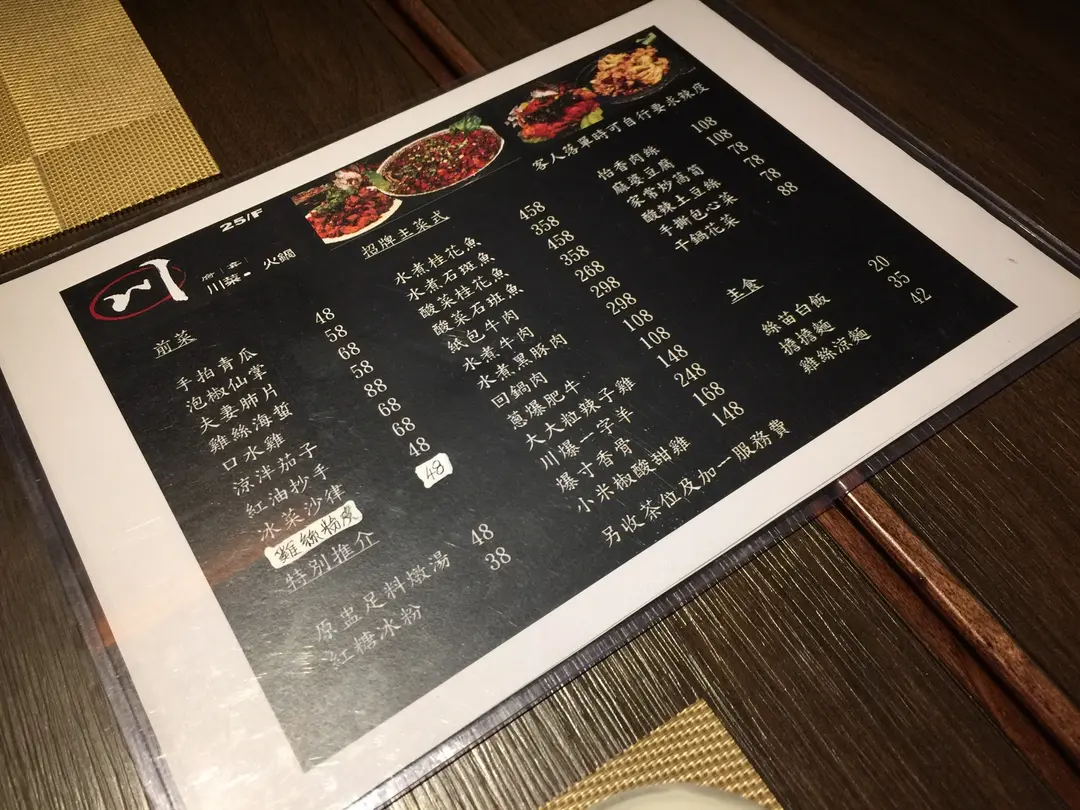 25/F
川
川菜·火鍋
前菜
手拍青瓜 48
泡椒仙掌 58
夫妻肺片 68
雞絲海蜇 58
口水雞 88
涼泮茄子 68
紅油抄手 68
冰菜沙律 48
雞絲粉皮 48
特別推介
原盅足料燉湯 48
紅糖冰粉 38
招牌主菜式
水煮桂花魚 458
水煮石斑魚 358
酸菜桂花魚 458
酸菜石斑魚 358
紙包牛肉 268
水煮牛肉 298
水煮黑豚肉 298
回鍋肉 108
蔥爆肥牛 108
大大粒辣子雞 148
川爆一字羊 248
爆寸香骨 168
小米椒酸甜雞 148
另收茶位及加一服務費
客人落單時可自行要求辣度
怡香肉絲 108
麻婆豆腐 108
家常炒萵筍 78
酸辣土豆絲 78
手撕包心菜 78
干鍋花菜 88
主食
絲苗白飯 20
擔擔麵 35
雞絲涼麵 42